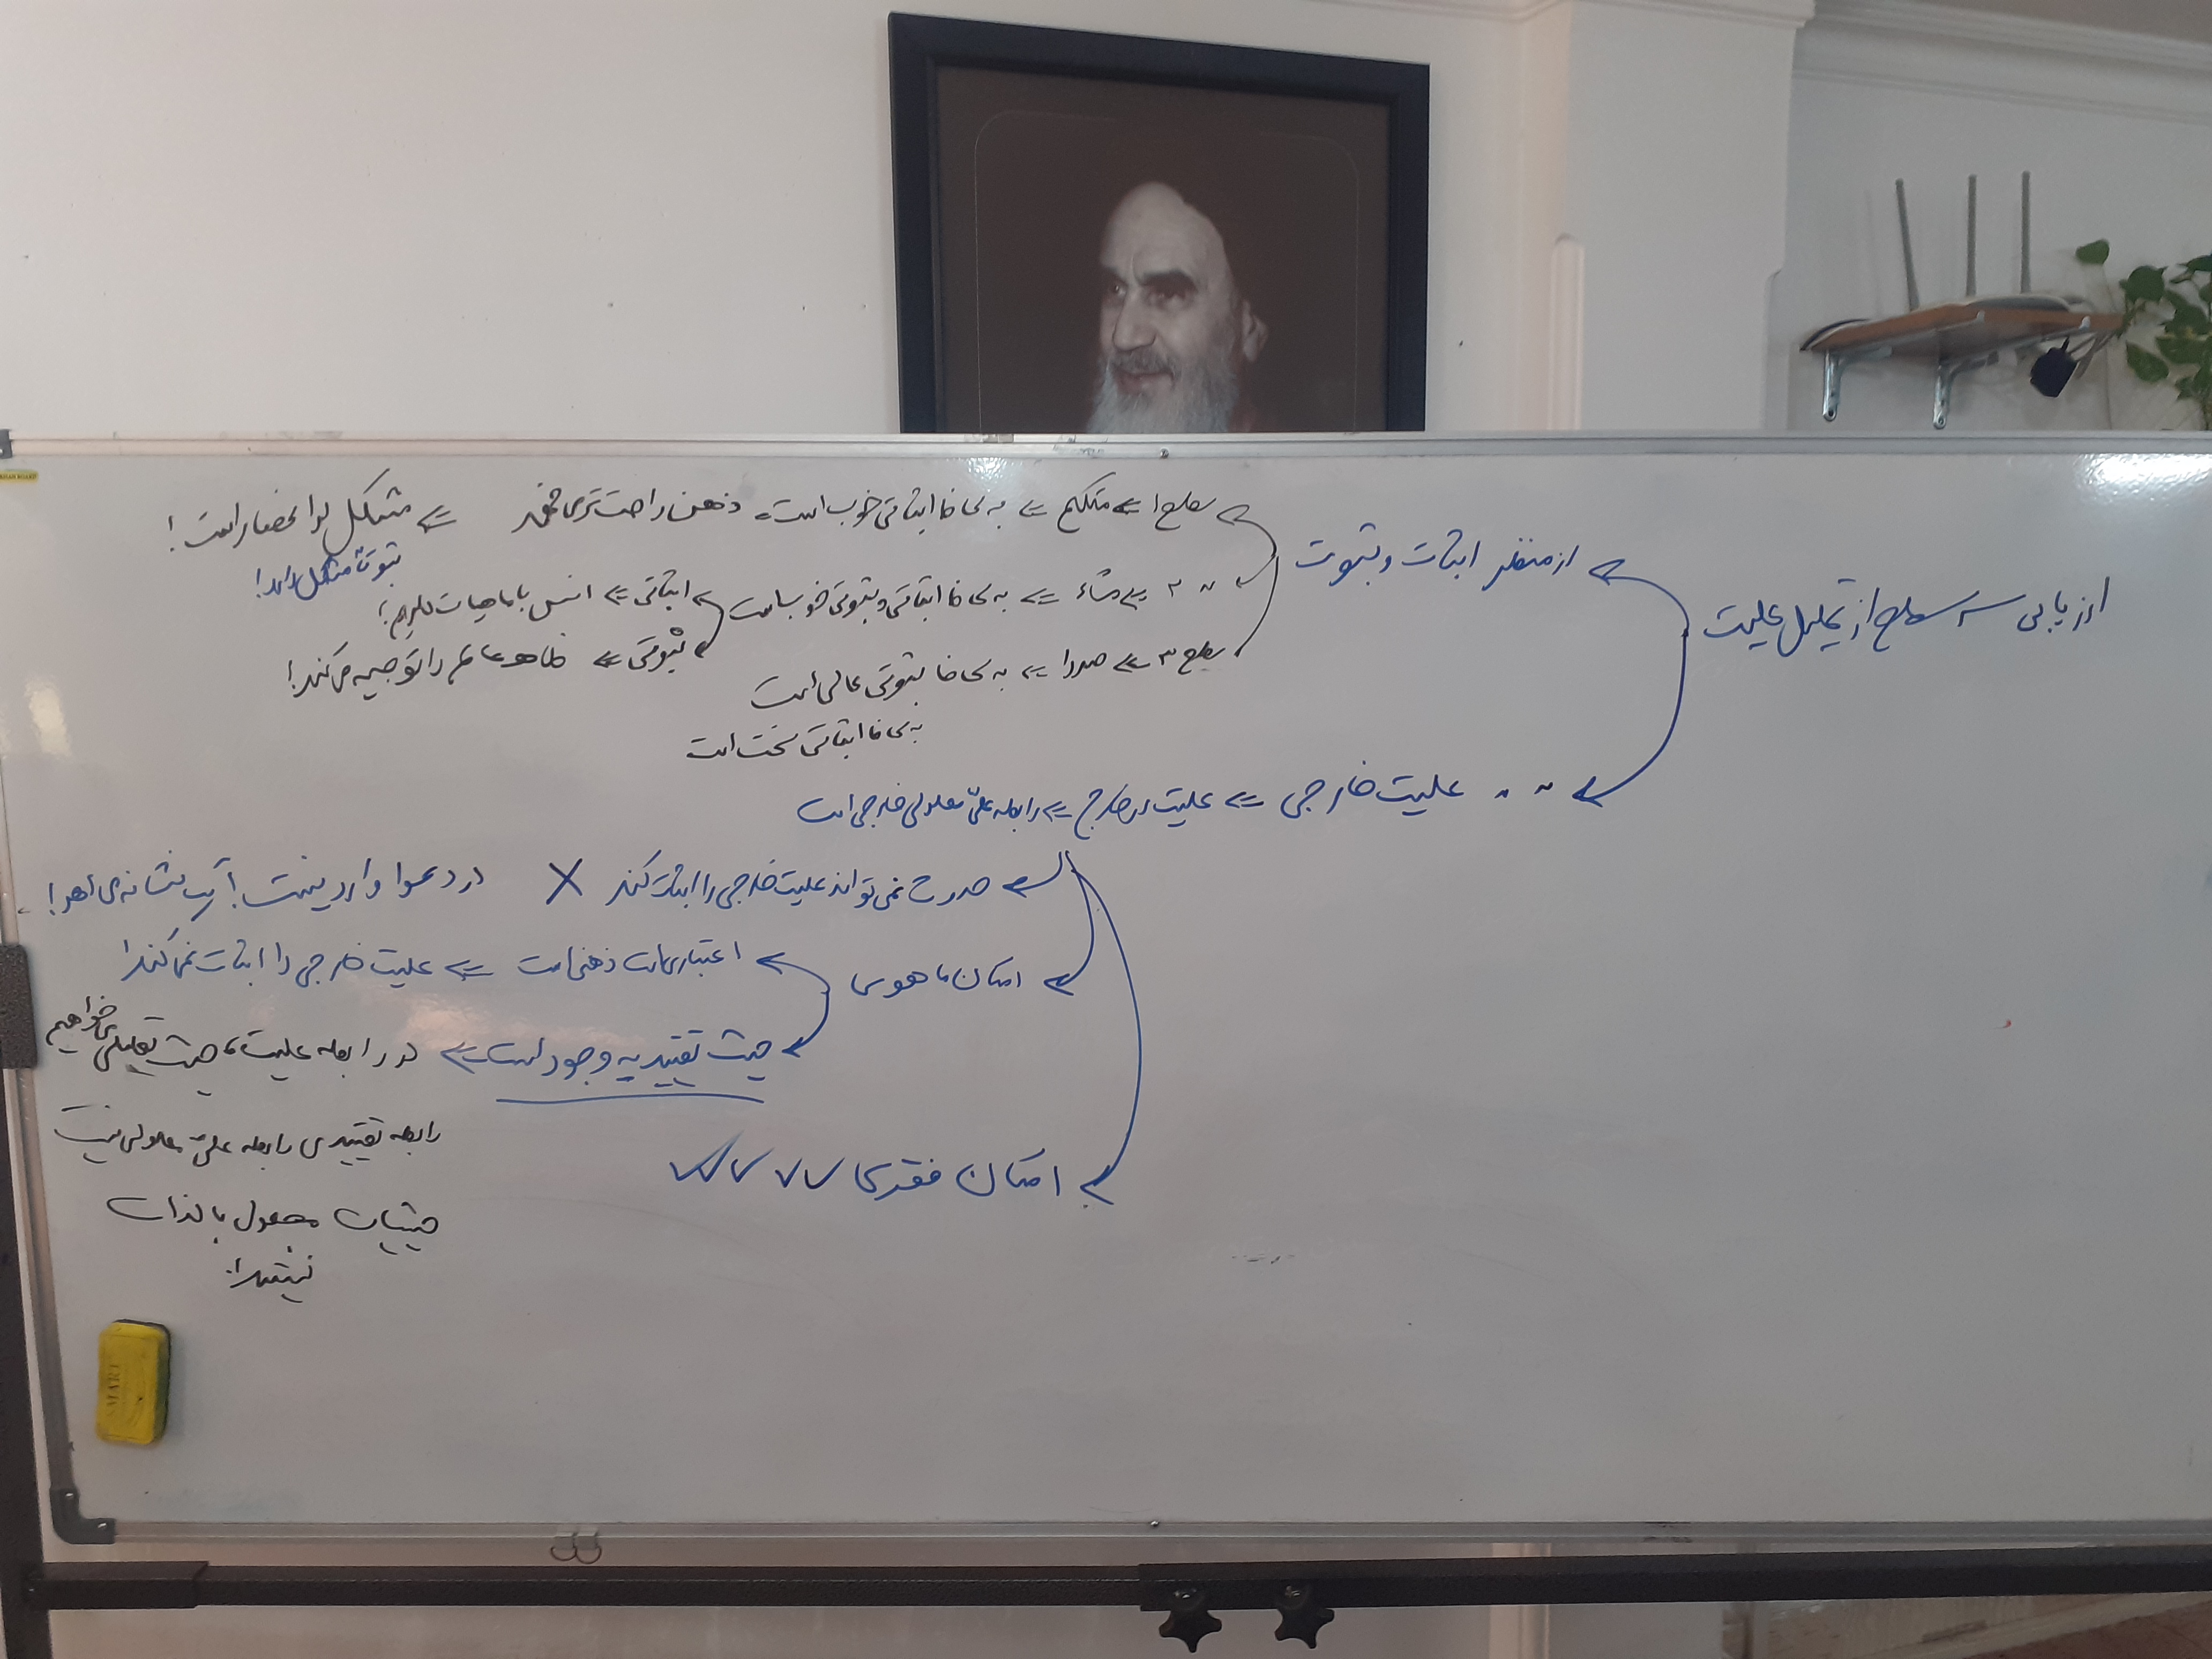 ارزیابی سه سطح از تحلیل علیت
از منظر اثبات و ثبوت
سطح ۱ ⇐ متکلم ⇐ به لحاظ اثباتی خوب است. ذهن راحت‌تر می‌فهمد ⇐ مشکل لوا انحصار است!
ثبوتاً مشکل دارد!
〃 ۲ ⇐ مشاء ⇐ به لحاظ اثباتی و ثبوتی خوب است
اثباتی ⇐ انس با ماهیات داریم!
ثبوتی ⇐ ظاهر عالم را توجیه می‌کند!
سطح ۳ ⇐ صدرا ⇐ به لحاظ ثبوتی عالی است
به لحاظ اثباتی سخت است
〃 〃 علیت خارجی ⇐ علیت در خارج ⇐ رابطه علّی معلولی خارجی است
حدوث نمی‌تواند علیت خارجی را اثبات کند X در دعوا وارد نیست!
امکان ماهوی
اعتباریات ذهنی است ⇐ علیت خارجی را اثبات نمی‌کند!
حیث تقییدیه وجود است ⇐ در رابطه علیت، حیث تعلیلی می‌خواهیم
رابطه تقییدی رابطه علّی معلولی نیست
حیثیات مجعول بالذات
نیستند!
امکان فقری ✓✓✓✓✓
SMART